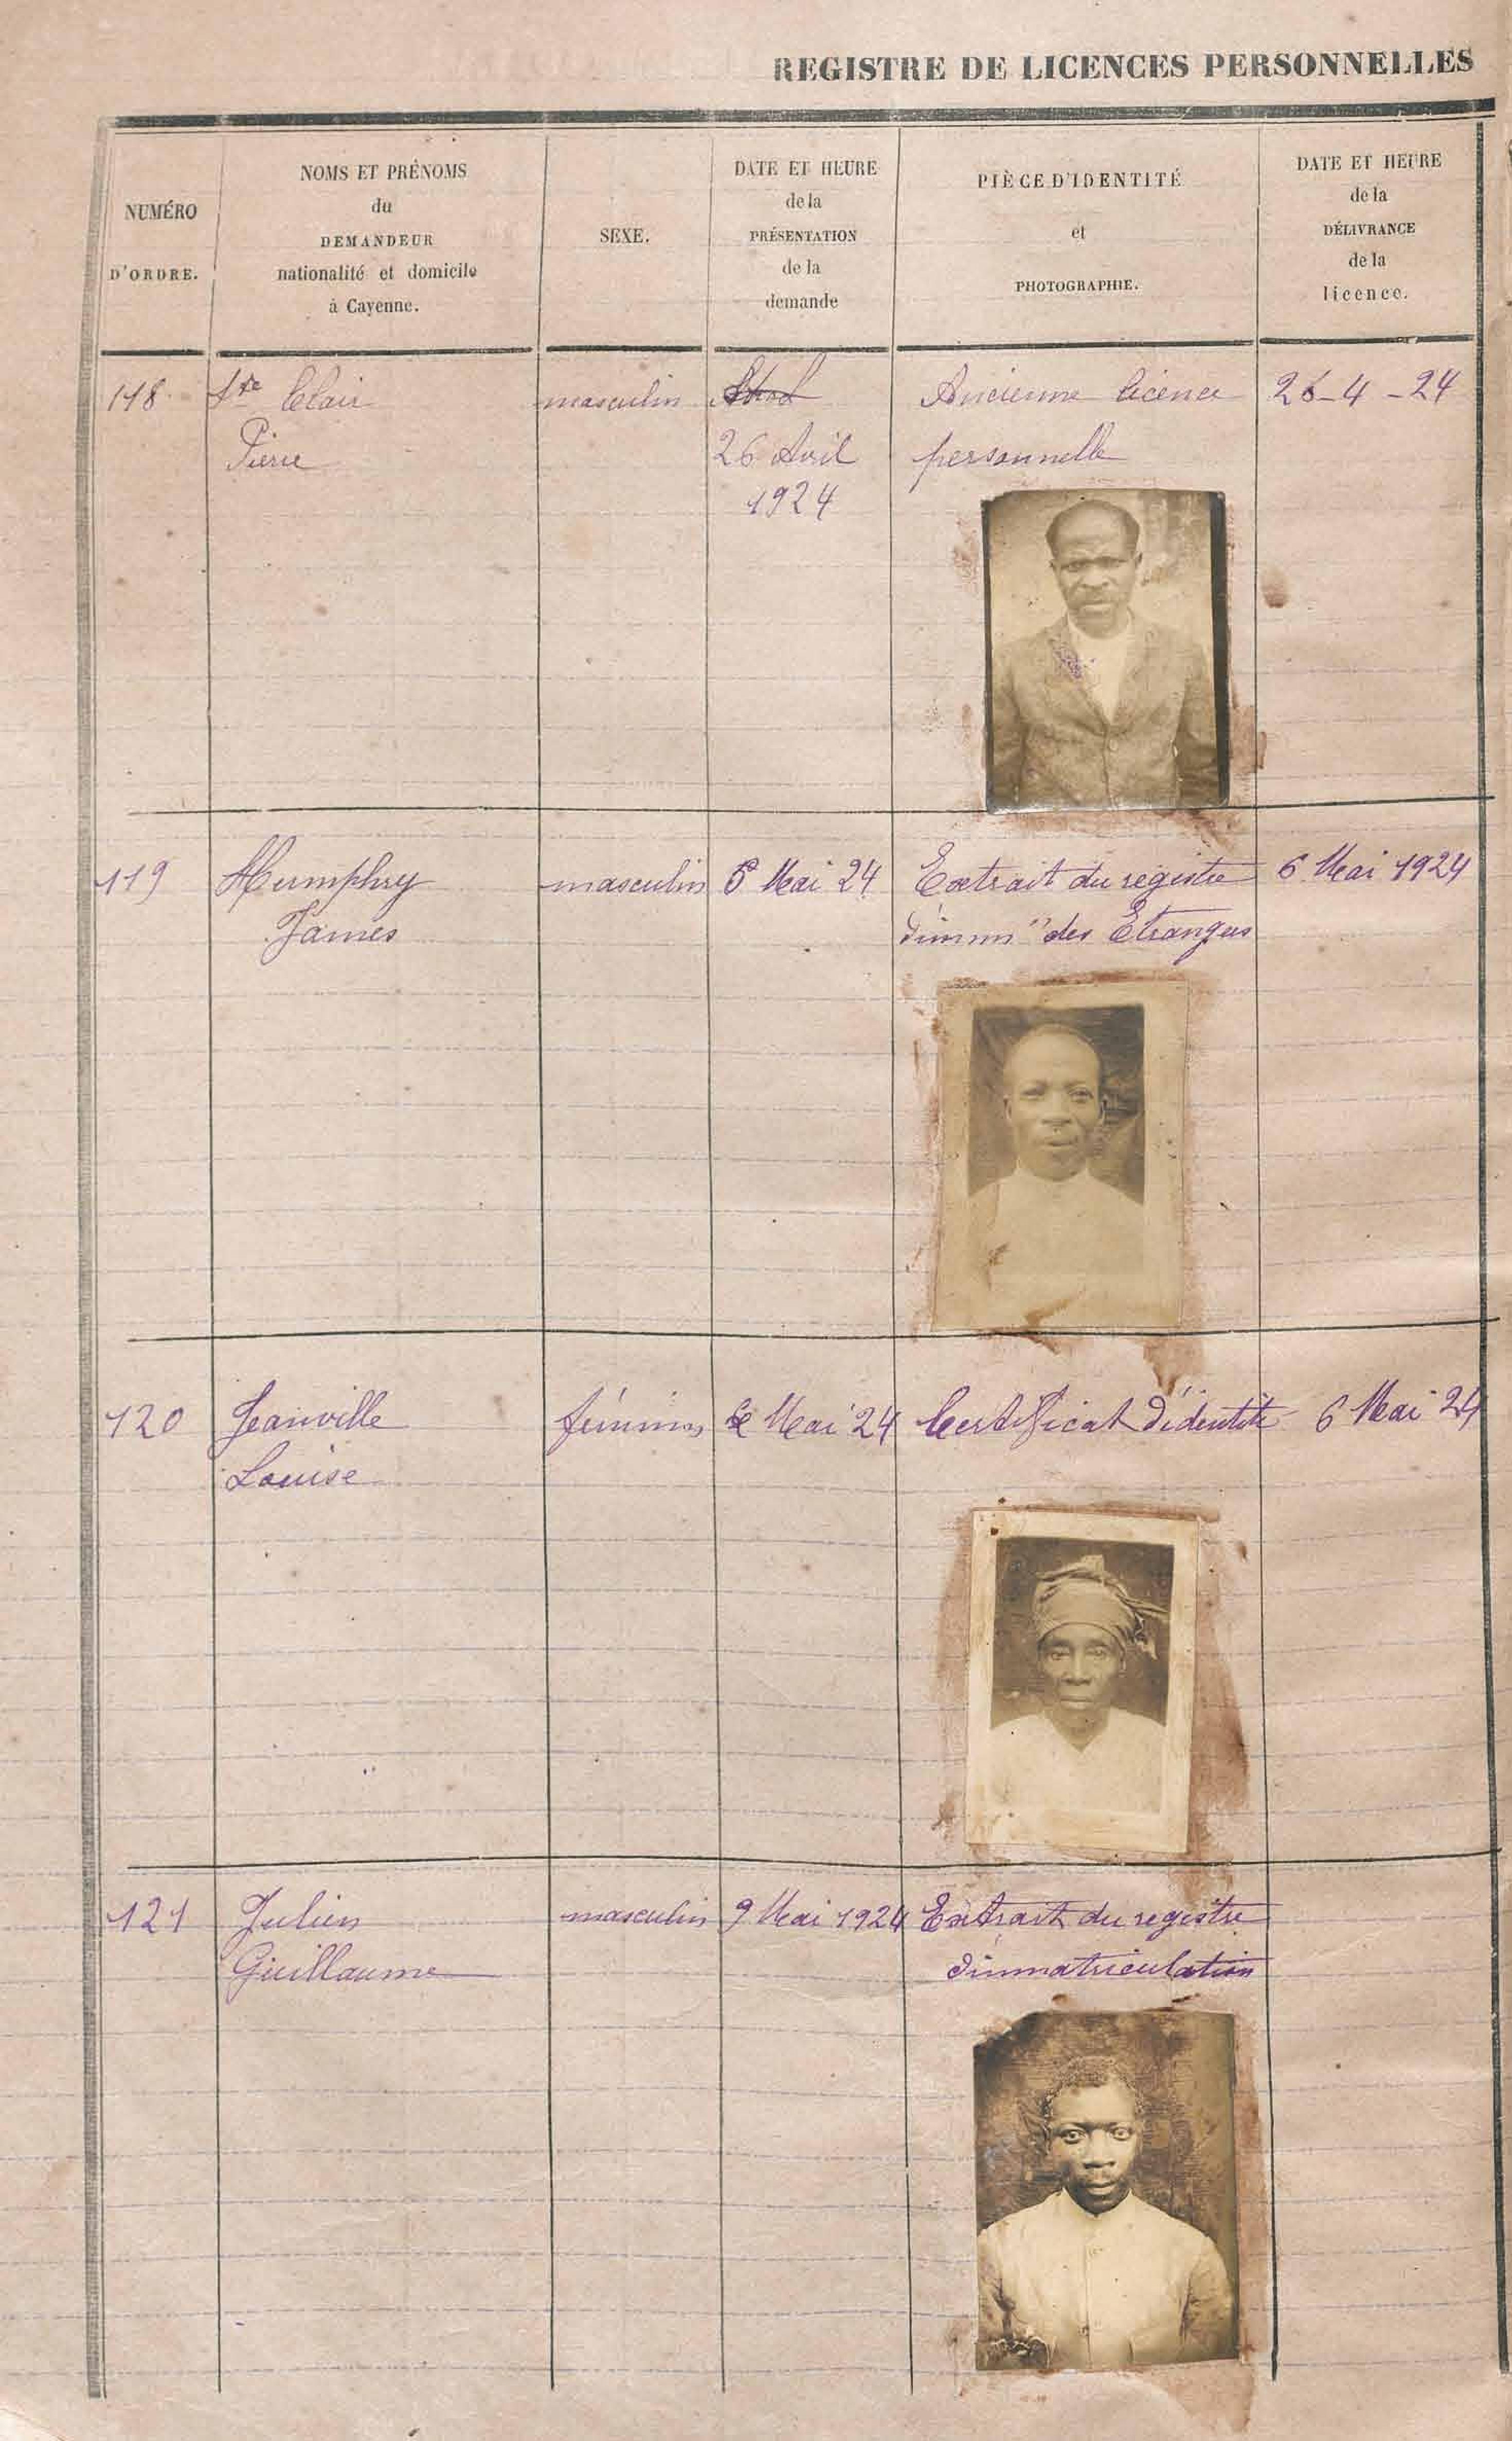 REGISTRE DE LICENCES PERSONNELLES
NUMÉRO
D'ORDRE.
NOMS ET PRÉNOMS
du
DEMANDEUR
nationalité et domicile
à Cayenne.
SEXE.
DATE ET HEURE
de la
PRÉSENTATION
de la
demande
PIÈCE D'IDENTITÉ
et
PHOTOGRAPHIE.
DATE ET HEURE
de la
DÉLIVRANCE
de la
licence.
118 Ste Clair masculin Ancienne licence 26-4-24
Pierre 26 Avril personnelle
1924
119 Humphry masculin 6 Mai 24 Extrait du registre 6 Mai 1924
James d'imm on des Etrangers
120 Jeanville féminin 6 Mai 24 Certificat d'identité 6 Mai 24
Louise
121 Julien masculin 9 Mai 1924 Extrait du registre
Guillaume d'immatriculation